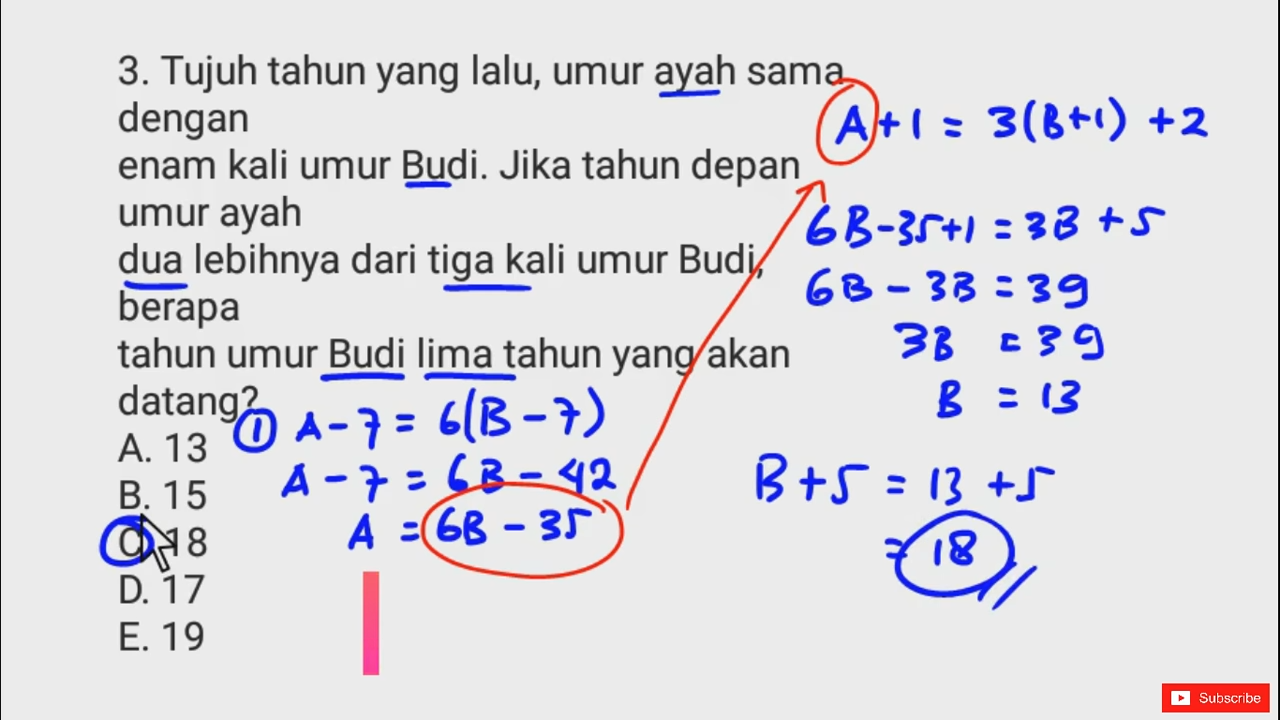 3. Tujuh tahun yang lalu, umur ayah sama
dengan
enam kali umur Budi. Jika tahun depan
umur ayah
dua lebihnya dari tiga kali umur Budi,
berapa
tahun umur Budi lima tahun yang akan
datang?
A. 13
B. 15
C. 18
D. 17
E. 19
① A - 7 = 6(B - 7)
A - 7 = 6B - 42
A = 6B - 35
A + 1 = 3(B+1) + 2
6B - 35 + 1 = 3B + 5
6B - 3B = 39
3B = 39
B = 13
B + 5 = 13 + 5
= 18
Subscribe